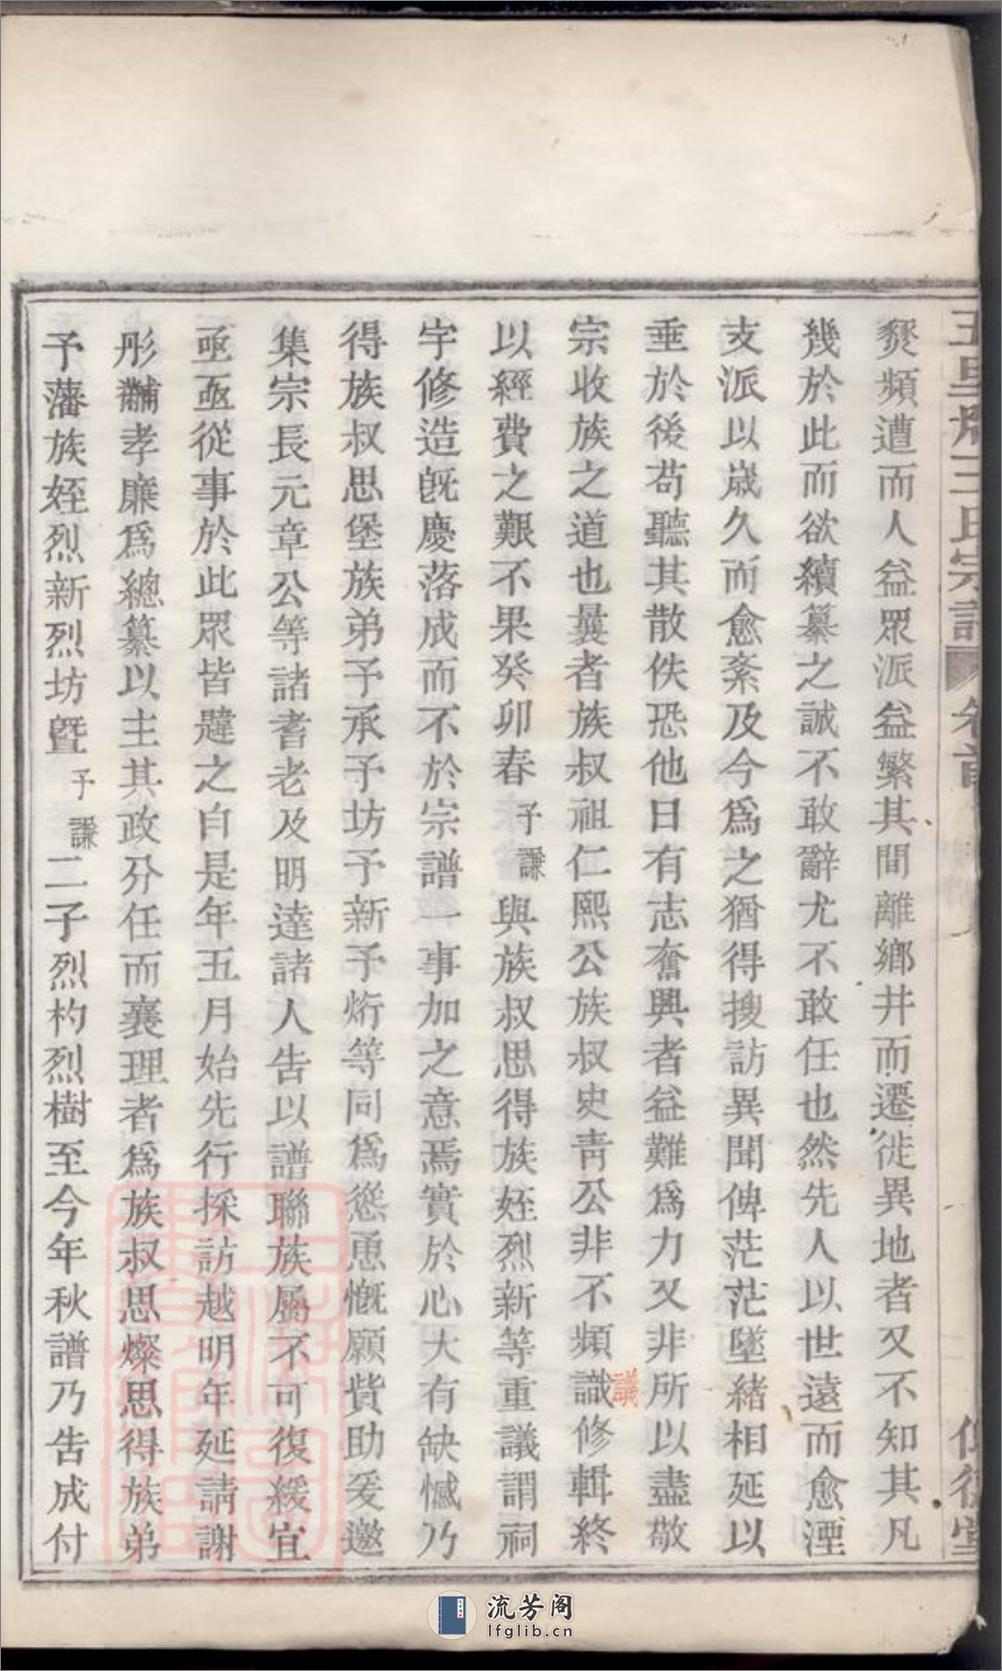 王氏宗譜
燹頻遭而人益眾派益繁其間離鄉井而遷徙異地者又不知其凡
幾於此而欲續纂之誠不敢辭尤不敢任也然先人以世遠而愈湮
支派以歲久而愈紊及今為之猶得搜訪異聞俾茫茫墜緒相延以
垂於後苟聽其散佚恐他日有志奮興者益難為力又非所以盡敬
宗收族之道也曩者族叔祖仁熙公族叔史青公非不頻識修輯終
議
以經費之艱不果癸卯春予謙與族叔思得族姪烈新等重議謂祠
宇修造旣慶落成而不於宗譜一事加之意焉實於心大有缺憾乃
得族叔思堡族弟予承予坊予新予烆等同為慫恿慨願貲助爰邀
集宗長元章公等諸耆老及明達諸人告以譜聯族屬不可復緩宜
亟亟從事於此眾皆韙之自是年五月始先行採訪越明年延請謝
彤黼孝廉為總纂以主其政分任而襄理者為族叔思燦思得族弟
予藩族姪烈新烈坊曁予謙二子烈杓烈樹至今年秋譜乃告成付
流芳阁
lfglib.cn